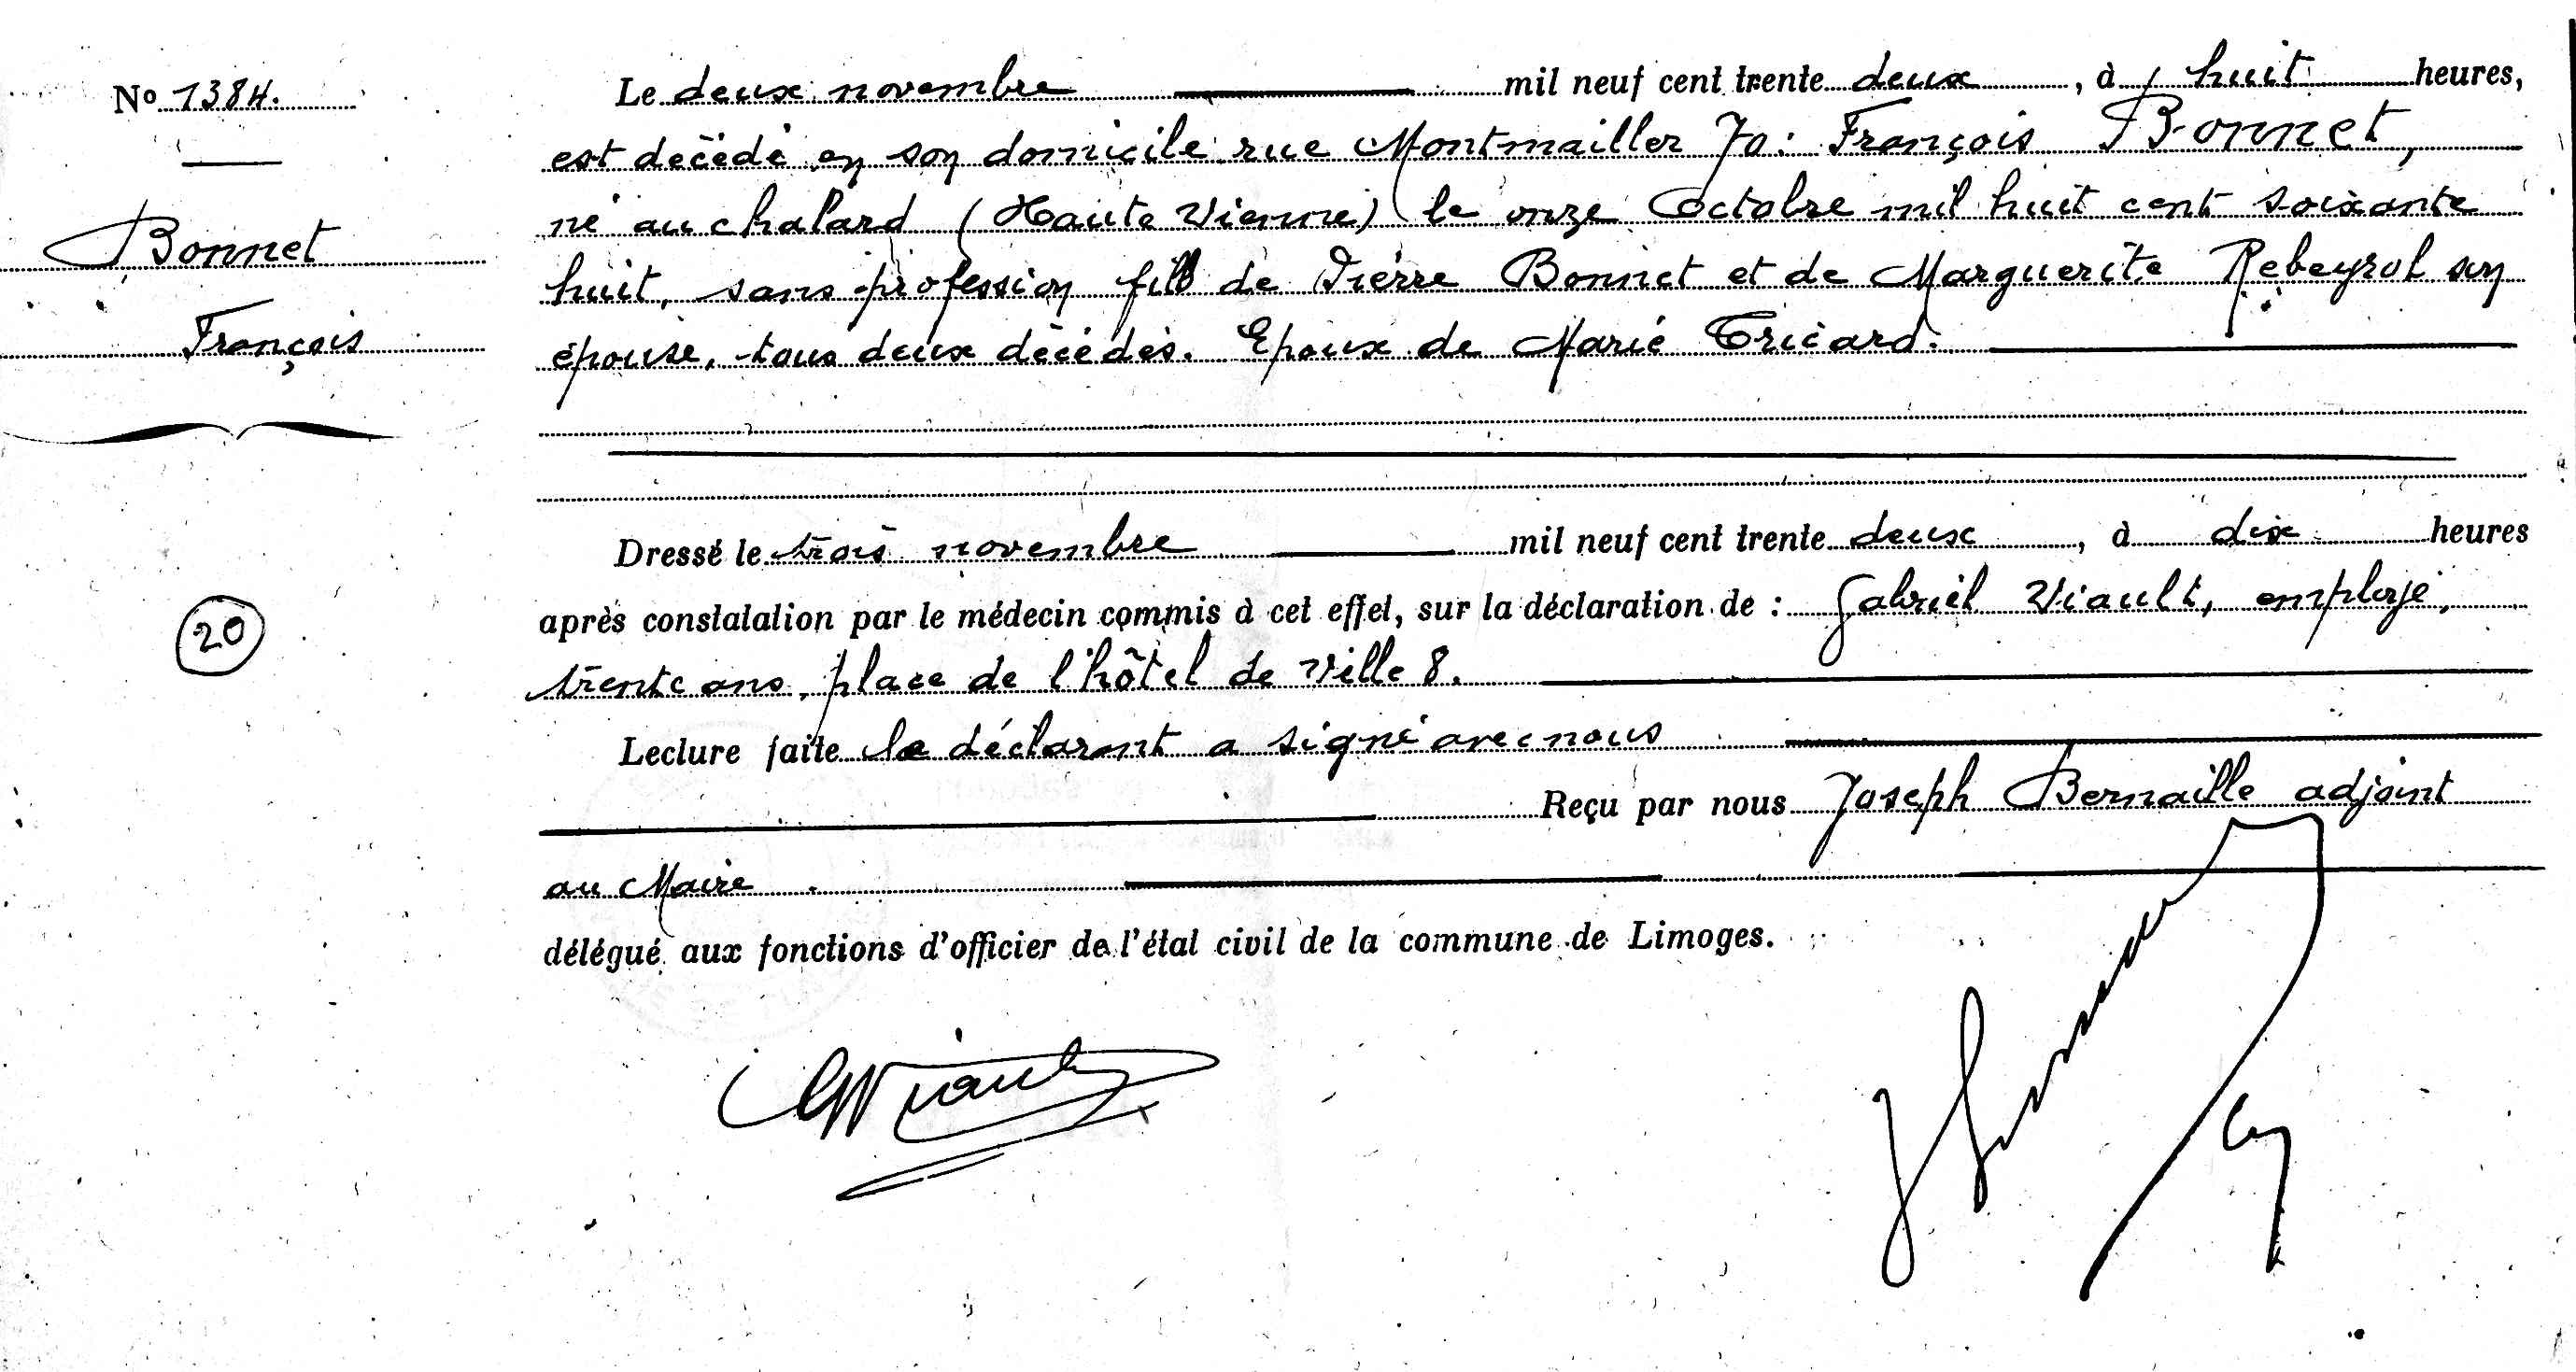 Nº 1384.
Bonnet
François
20
Le deux novembre mil neuf cent trente deux, à huit heures,
est décédé en son domicile rue Montmailler 70: François Bonnet,
né au chalard (Haute Vienne) le onze Octobre mil huit cent soixante
huit, sans profession fils de Pierre Bonnet et de Marguerite Rebeyrol son
épouse, tous deux décédés. Epoux de Marie Tricard.
Dressé le trois novembre mil neuf cent trente deux, à dix heures
après constatation par le médecin commis à cet effet, sur la déclaration de : Gabriel Viault, employé,
trente ans, place de l'hôtel de Ville 8.
Lecture faite le déclarant a signé avec nous
Reçu par nous Joseph Bernaille adjoint
au Maire
délégué aux fonctions d'officier de l'état civil de la commune de Limoges.
GViault